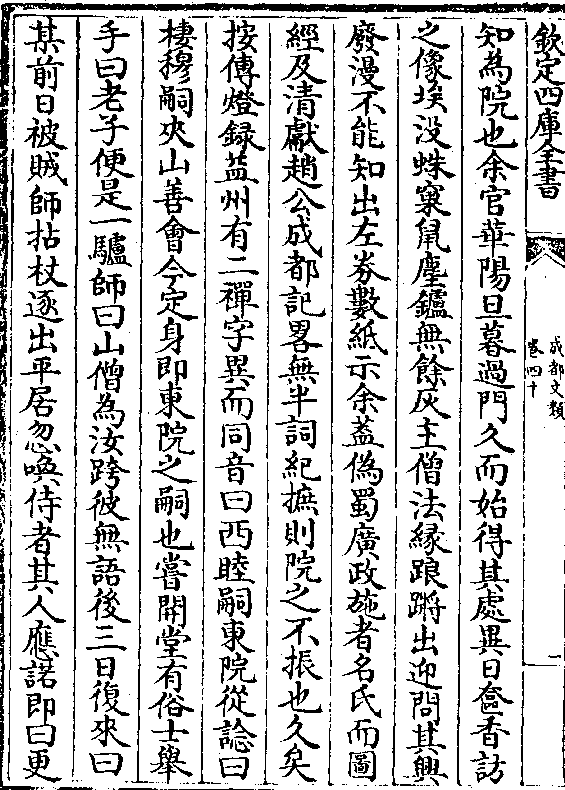 欽定四庫全書
成都文類
卷四十
一
知為院也余官華陽旦暮過門久而始得其處異日奩香訪
之像埃没蛛窠䑕塵鑪無餘灰主僧法縁踉蹡出迎問其興
廢漫不能知出左券數紙示余葢偽蜀廣政施者名氏而圖
經及清獻趙公成都記畧無半詞紀摭則院之不振也久矣
按傳燈録益州有二禪字異而同音曰西睦嗣東院從諗曰
棲穆嗣夾山善會今定身即東院之嗣也嘗開堂有俗士舉
手曰老子便是一驢師曰山僧為汝跨彼無語後三日復來曰
某前日被賊師拈杖逐出平居忽喚侍者其人應諾即曰更